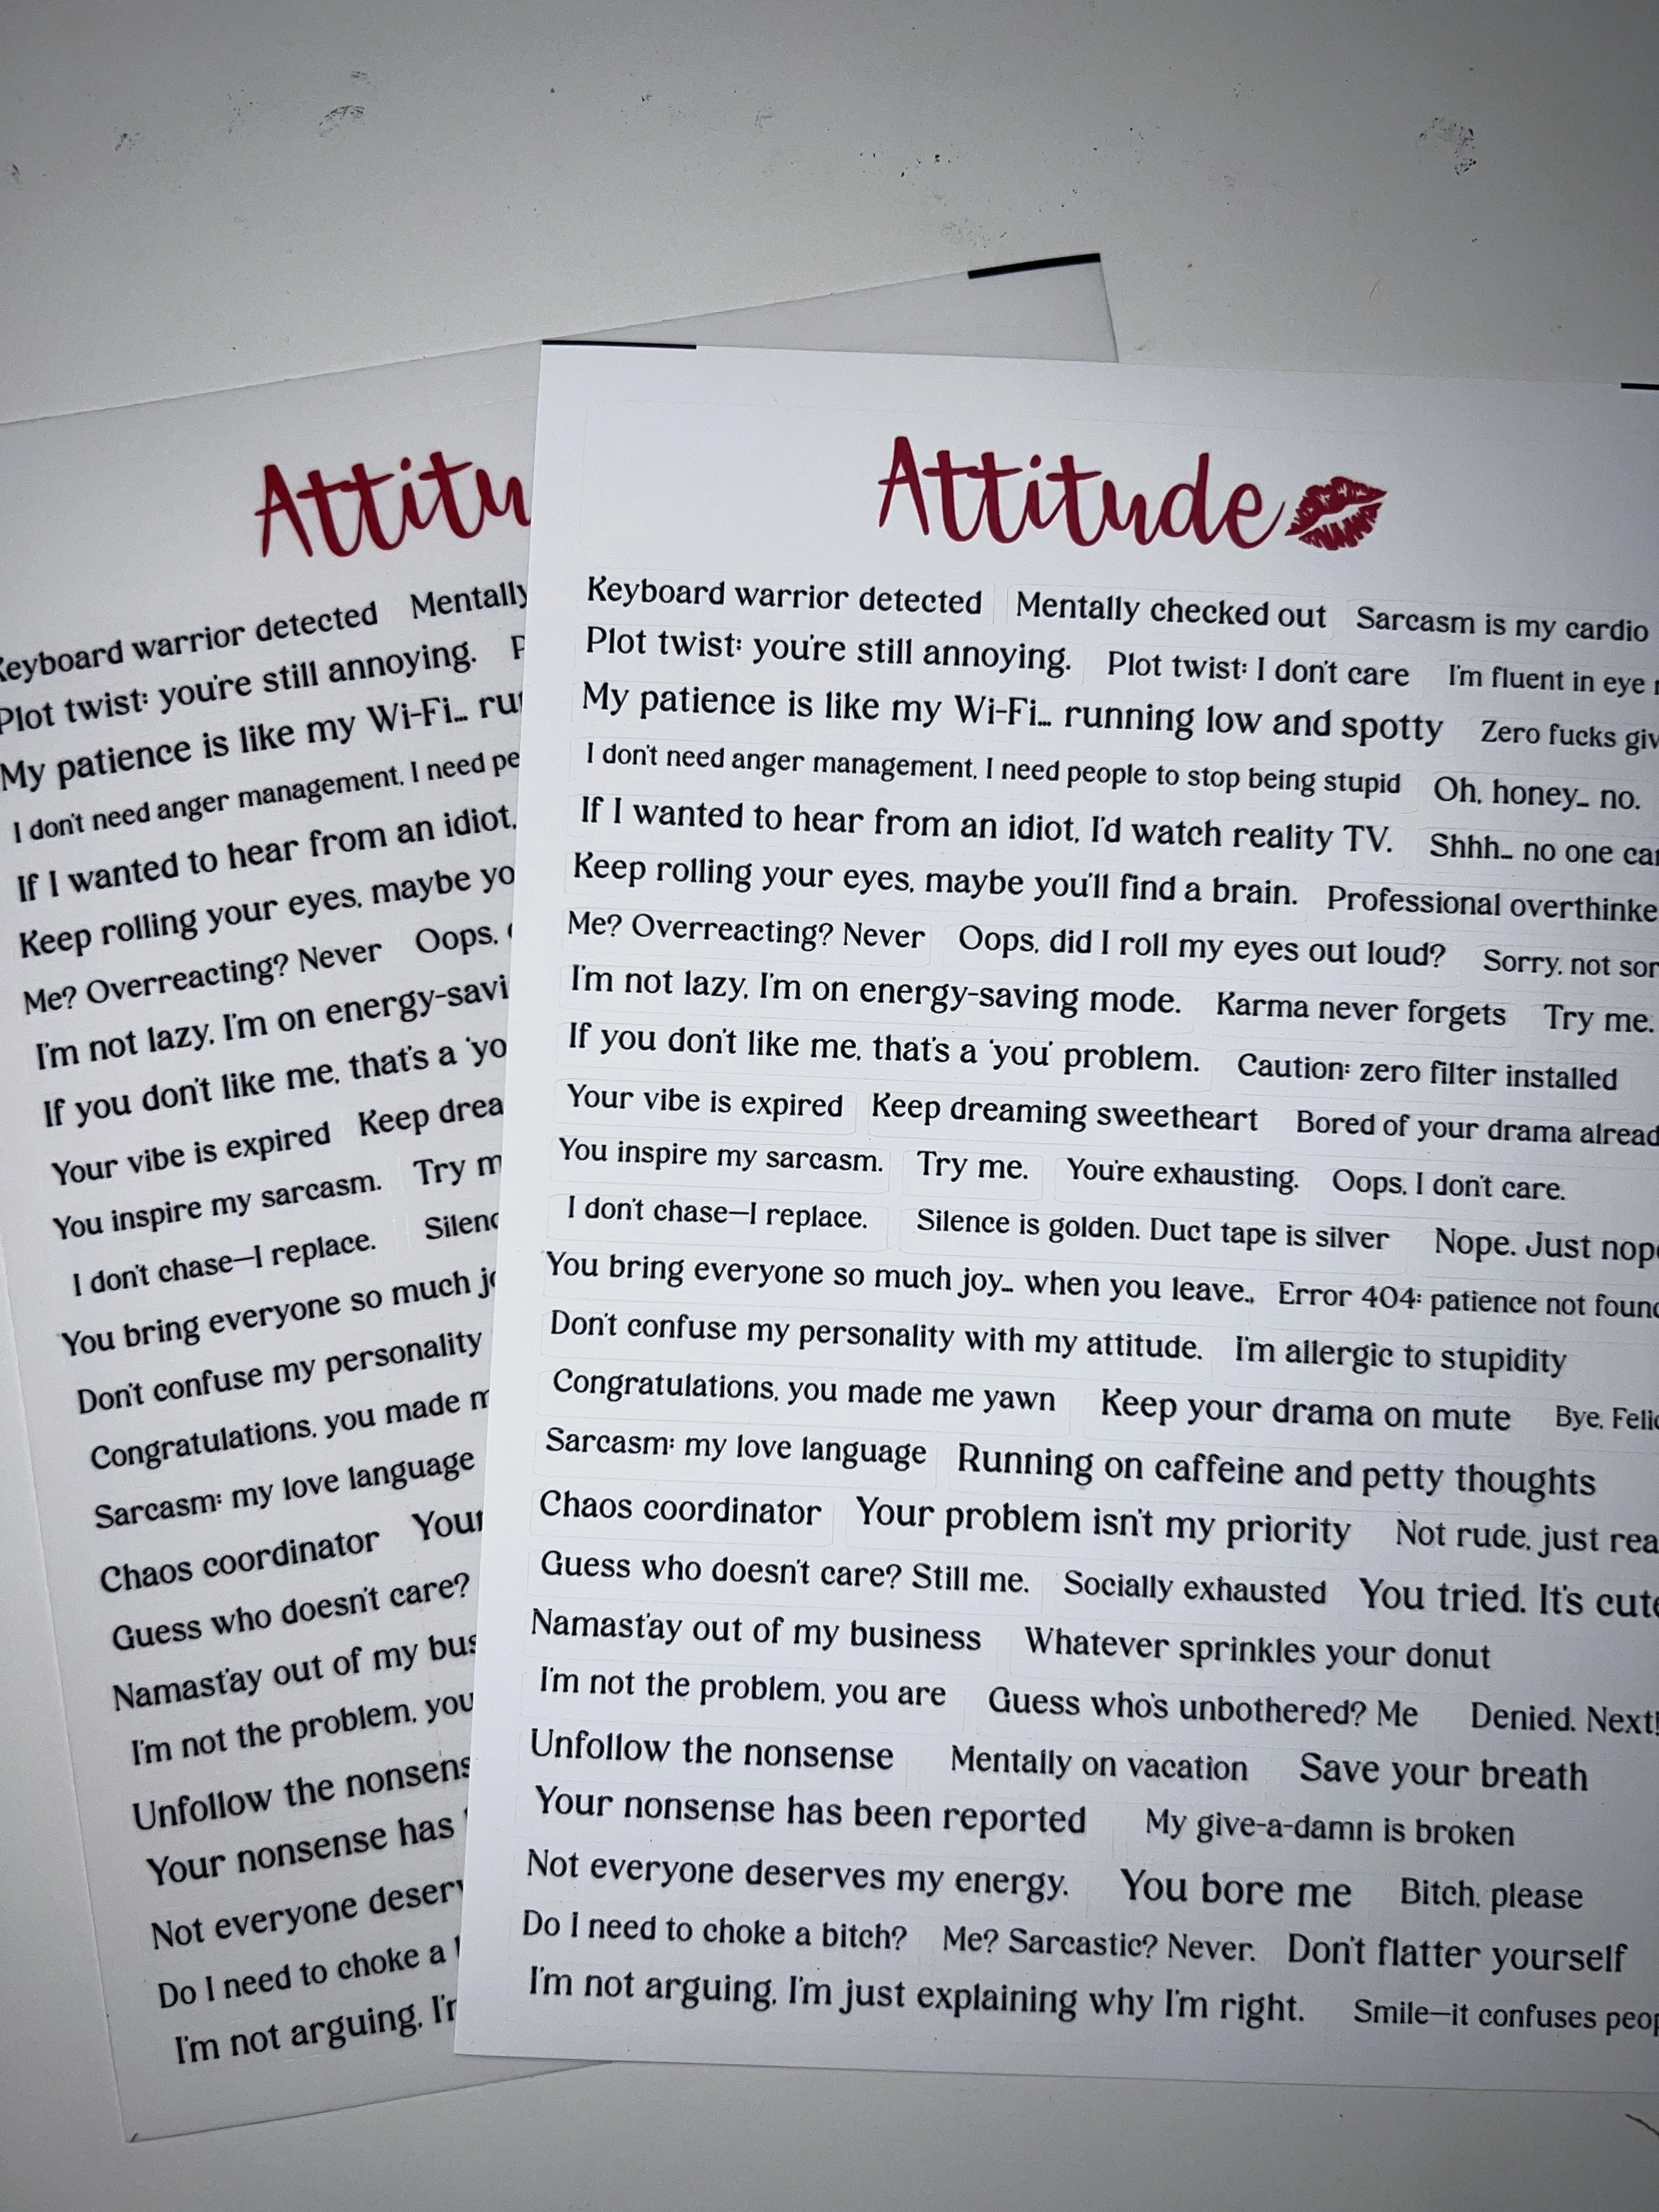 Attitu
Keyboard warrior detected Mentally
Plot twist: you're still annoying.
My patience is like my Wi-Fi...
I don't need anger management, I need
If I wanted to hear from an idiot,
Keep rolling your eyes, maybe
Me? Overreacting? Never Oops,
I'm not lazy, I'm on
If you don't like me, that's a
Your vibe is expired Keep
You inspire my sarcasm. Try
I don't chase—I replace.
You bring everyone so much
Don't confuse my personality
Congratulations, you made
Sarcasm: my love language
Chaos coordinator Your
Guess who doesn't care?
Namast'ay out of my
I'm not the problem, you
Unfollow the
Your nonsense has
Not everyone
Do I need to choke a
I'm not arguing,
Attitude
Keyboard warrior detected Mentally checked out Sarcasm is my cardio
Plot twist: you're still annoying. Plot twist: I don't care I'm fluent in eye
My patience is like my Wi-Fi... running low and spotty Zero fucks
I don't need anger management, I need people to stop being stupid Oh, honey... no.
If I wanted to hear from an idiot, I'd watch reality TV. Shhh... no one
Keep rolling your eyes, maybe you'll find a brain. Professional
Me? Overreacting? Never Oops, did I roll my eyes out loud? Sorry, not
I'm not lazy, I'm on energy-saving mode. Karma never forgets Try me.
If you don't like me, that's a 'you' problem. Caution: zero filter installed
Your vibe is expired Keep dreaming sweetheart Bored of your drama
You inspire my sarcasm. Try me. You're exhausting. Oops, I don't care.
I don't chase—I replace. Silence is golden. Duct tape is silver Nope. Just
You bring everyone so much joy... when you leave., Error 404: patience not
Don't confuse my personality with my attitude. I'm allergic to stupidity
Congratulations, you made me yawn Keep your drama on mute Bye,
Sarcasm: my love language Running on caffeine and petty thoughts
Chaos coordinator Your problem isn't my priority Not rude, just
Guess who doesn't care? Still me. Socially exhausted You tried. It's
Namast'ay out of my business Whatever sprinkles your donut
I'm not the problem, you are Guess who's unbothered? Me Denied. Next!
Unfollow the nonsense Mentally on vacation Save your breath
Your nonsense has been reported My give-a-damn is broken
Not everyone deserves my energy. You bore me Bitch, please
Do I need to choke a bitch? Me? Sarcastic? Never. Don't flatter yourself
I'm not arguing, I'm just explaining why I'm right. Smile—it confuses